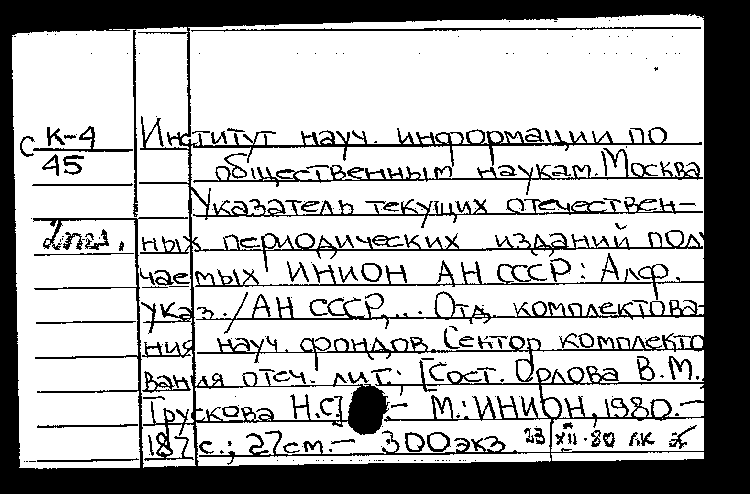 С К-4
45
Институт науч. информации по
общественным наукам. Москва
Указатель текущих отечествен-
ных периодических изданий полу
чаемых ИНИОН АН СССР: Алф.
указ./АН СССР,... Отд. комплектова-
ния науч. фондов. Сектор комплекто
вания отеч. лит.; [Сост. Орлова В.М.,
Трускова Н.С] .- М.: ИНИОН, 1980.-
187 с.; 27см.- 300экз. 23 XII-80